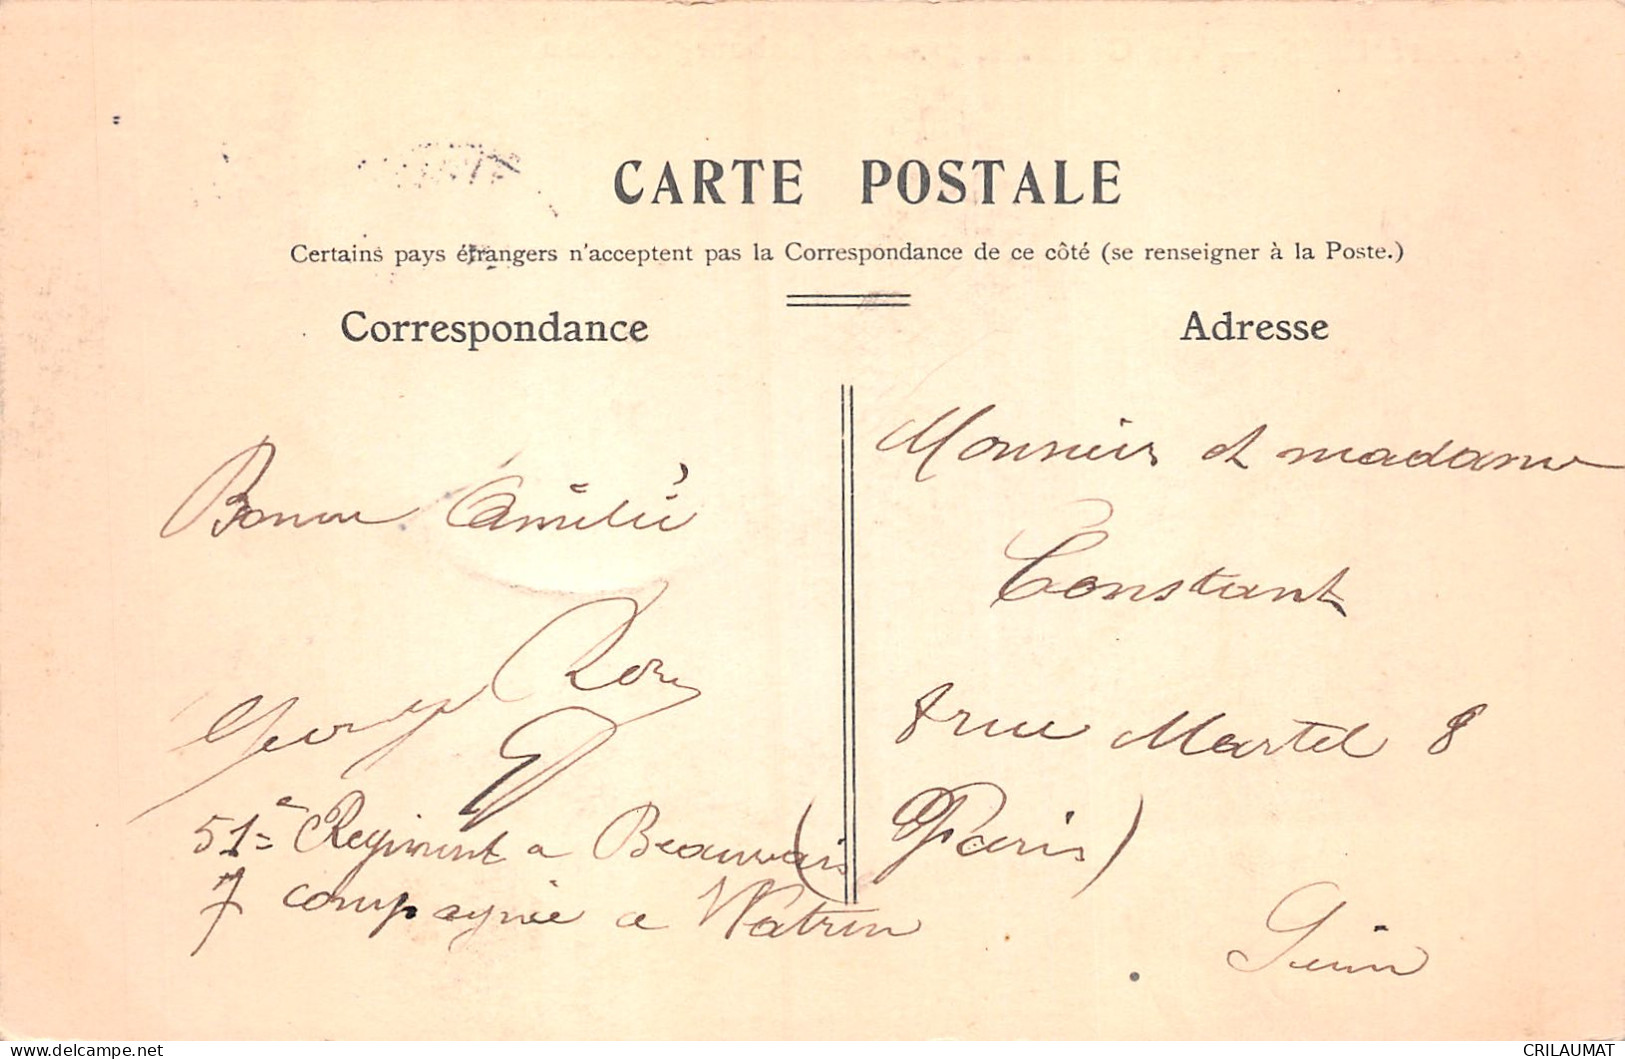 CARTE POSTALE
Certains pays étrangers n'acceptent pas la Correspondance de ce côté (se renseigner à la Poste.)
Correspondance
Adresse
Bonne Amitié
Georges
51e Regiment a Beauvais
7 compagnie a Watrin
Monsieur et madame
Constant
8 rue Martel 8
(Paris)
Seine
CRILAUMAT